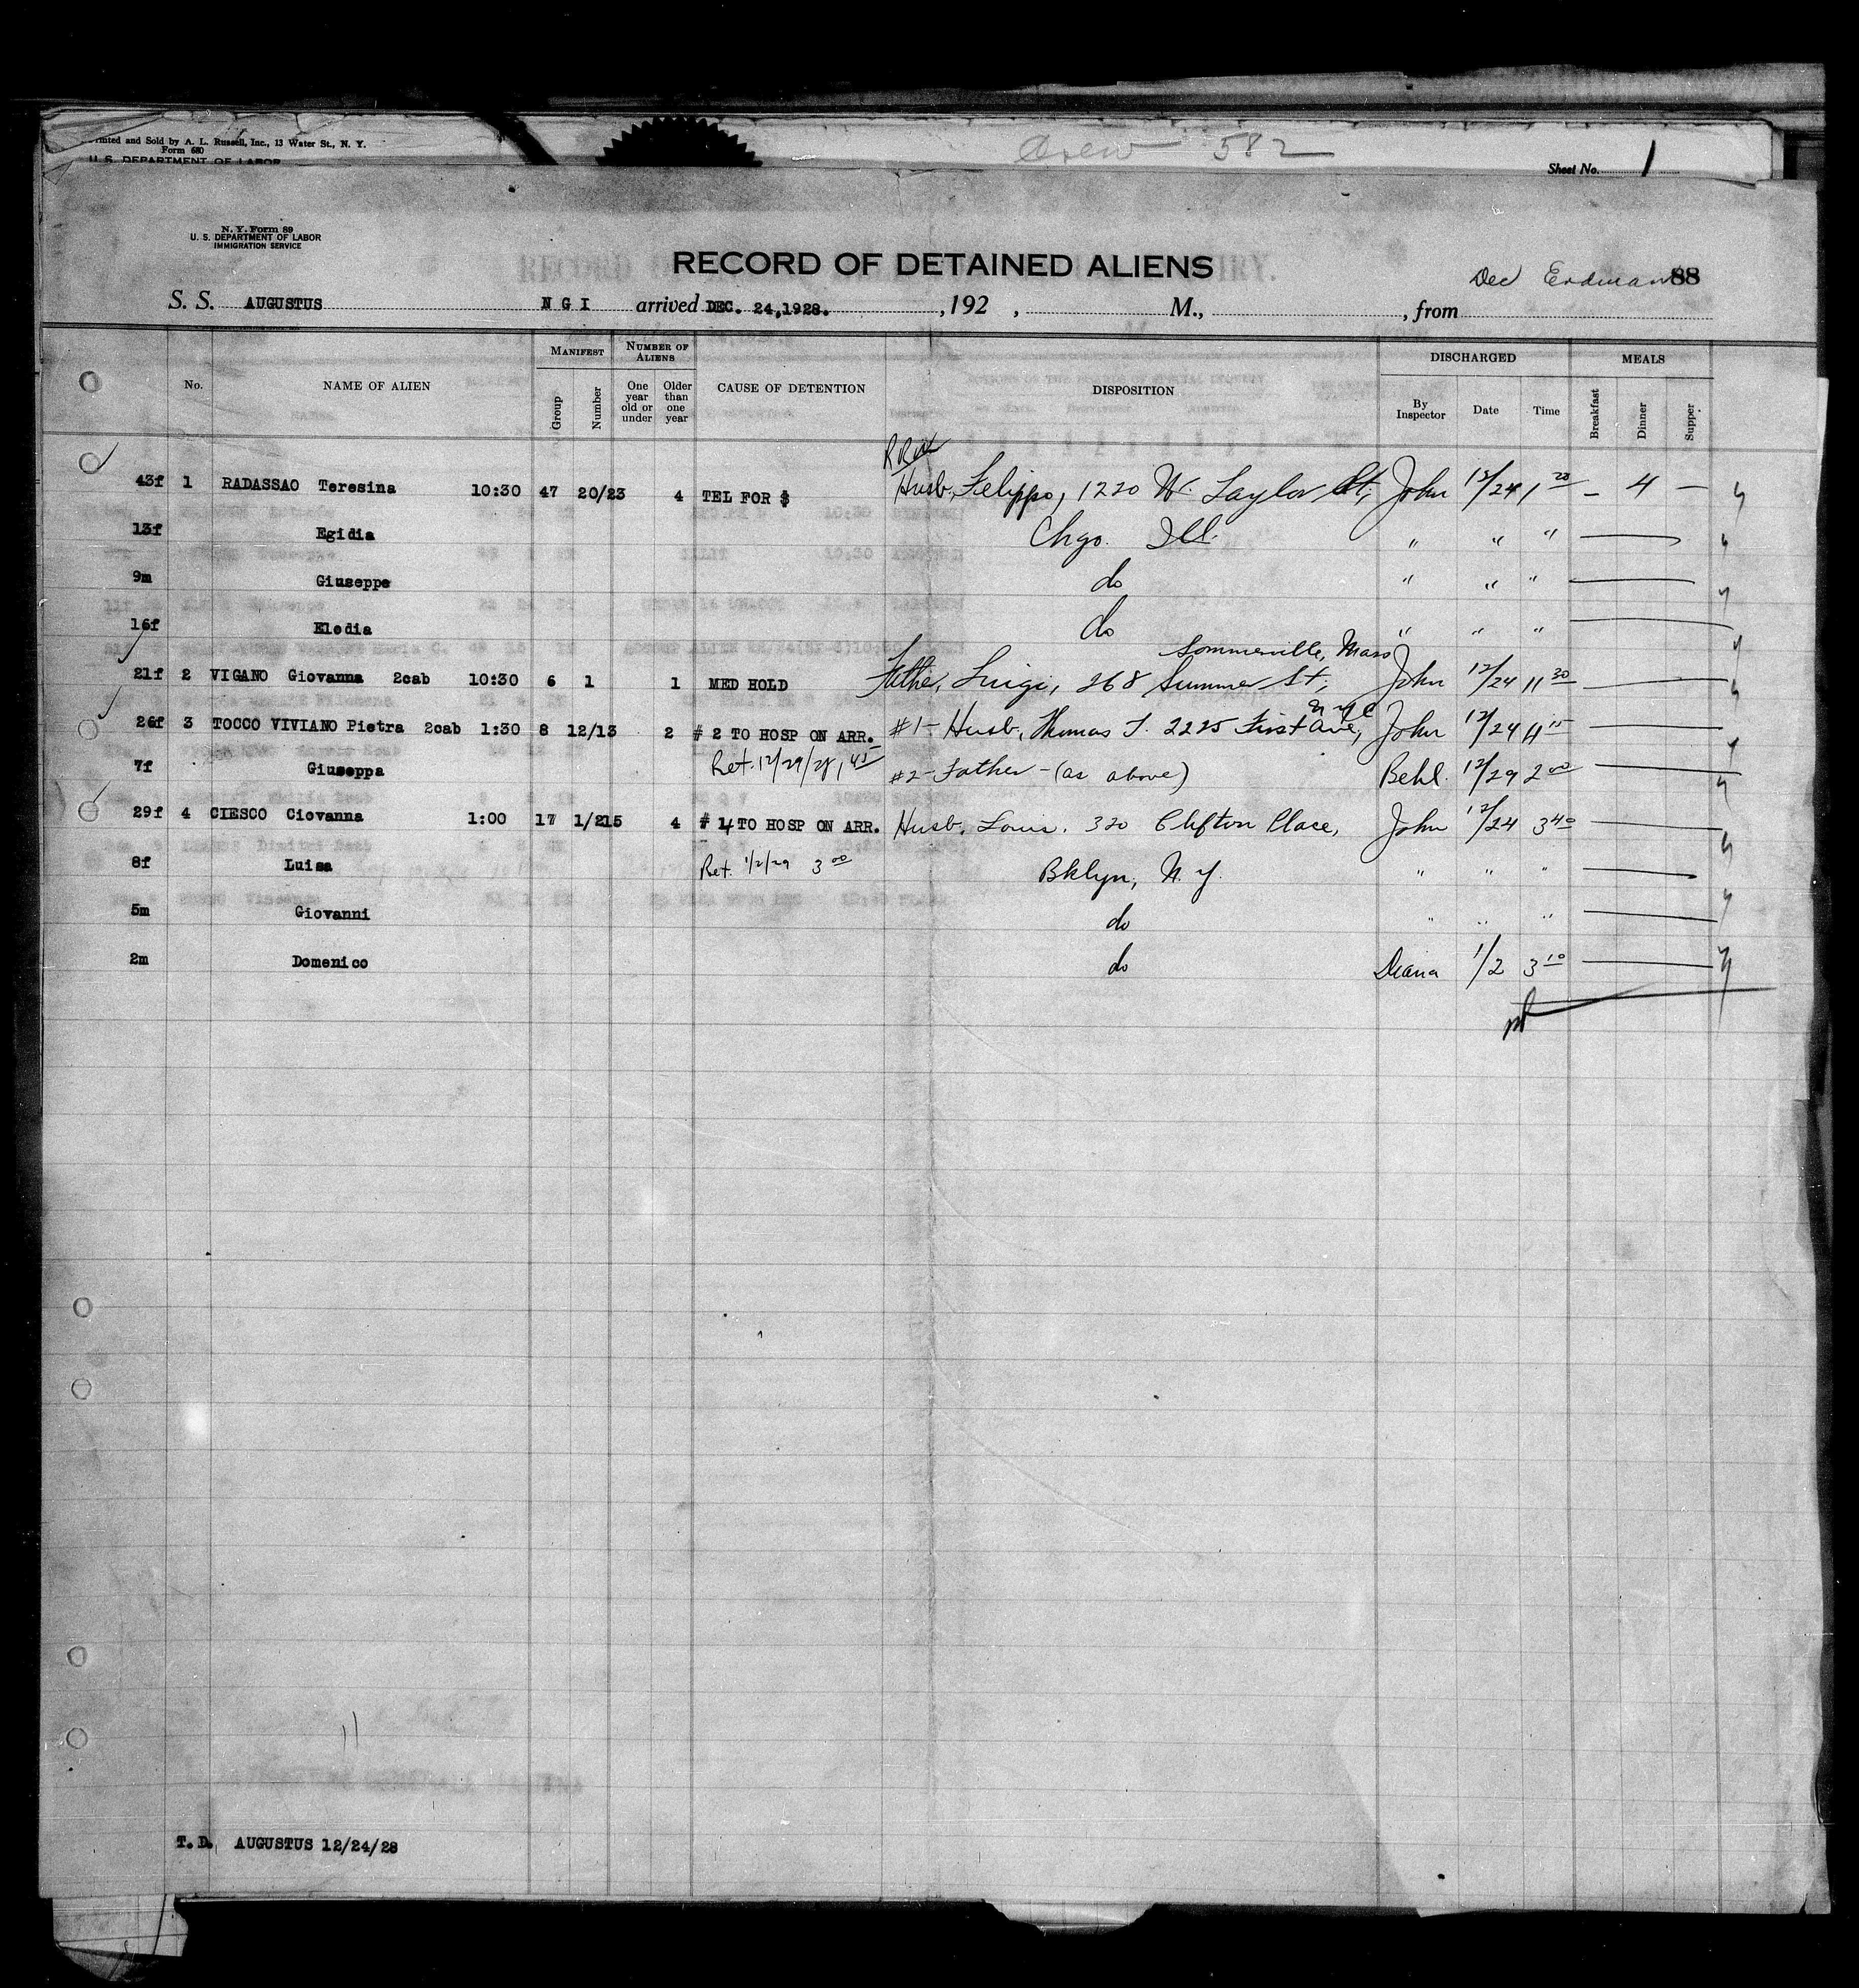 inted and Sold by A. L. Russell, Inc., 13 Water St., N. Y.
Form 680
U. S. DEPARTMENT OF LABOR
582
Sheet No. 1
N. Y. Form 89
U. S. DEPARTMENT OF LABOR
IMMIGRATION SERVICE
RECORD OF DETAINED ALIENS
Dec Erdman 88
S. S. AUGUSTUS N G I arrived DEC. 24,1928. ,192 , M., , from
No. NAME OF ALIEN MANIFEST Group Number NUMBER OF ALIENS One year old or under Older than one year CAUSE OF DETENTION DISPOSITION DISCHARGED By Inspector Date Time MEALS Breakfast Dinner Supper
43f 1 RADASSAO Teresina 10:30 47 20/23 4 TEL FOR $ Husb, Felippo, 1220 W. Taylor St, John 12/24 1 20 – 4 –
13f Egidia Chgo. Ill. " " "
9m Giuseppe do " " "
16f Eledia do " " "
Sommerville, Mass
21f 2 VIGANO Giovanna 2cab 10:30 6 1 1 MED HOLD Father, Luigi, 268 Summer St, John 12/24 11 30
N Y C
26f 3 TOCCO VIVIANO Pietra 2cab 1:30 8 12/13 2 # 2 TO HOSP ON ARR. #1- Husb, Thomas T. 2225 First Ave, John 12/24 11 15
7f Giuseppa Ret. 12/29/28, 1 45 #2- Father - (as above) Behl. 12/29 2 00
29f 4 CIESCO Ciovanna 1:00 17 1/215 4 # 4 TO HOSP ON ARR. Husb, Louis. 320 Clifton Place, John 12/24 3 40
8f Luisa Ret. 1/2/29 3 00 Bklyn, N. Y. " " "
5m Giovanni do " " "
2m Domenico do Diana 1/2 3 10
T. D. AUGUSTUS 12/24/28